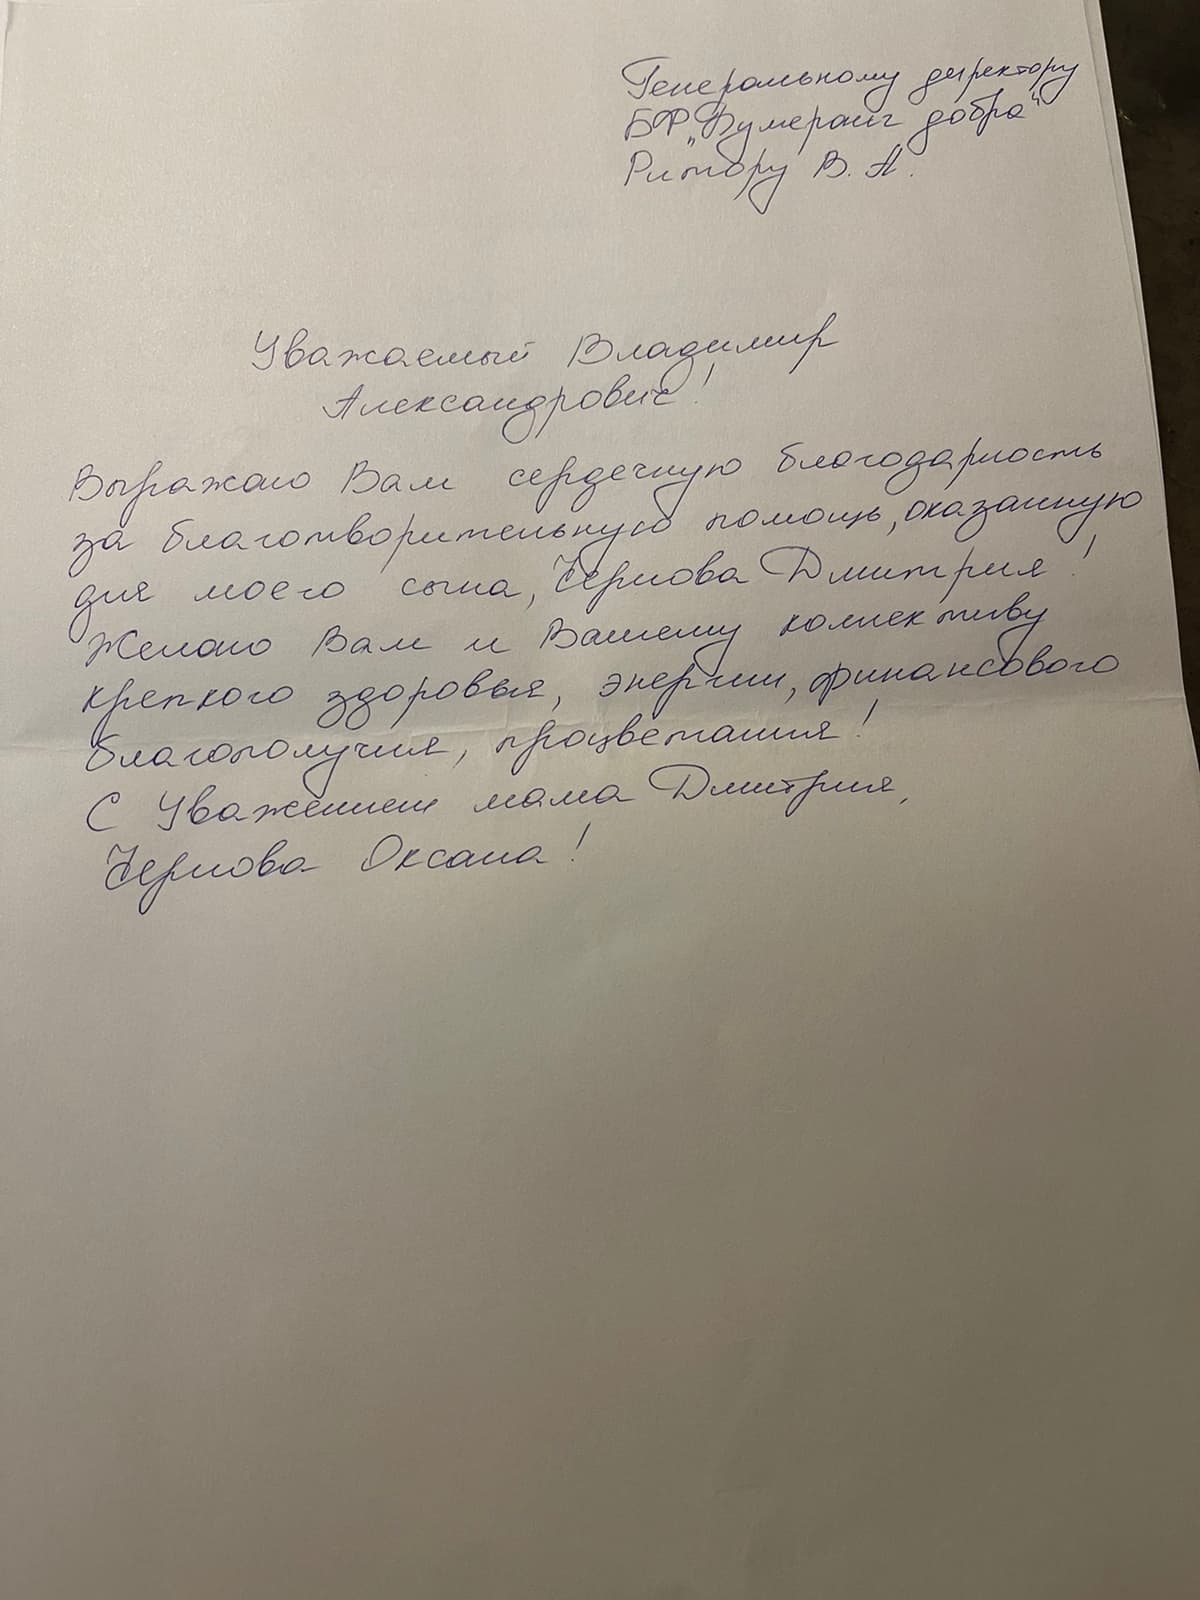 Генеральному директору
БФ „Бумеранг добра“
Ритору В. А.
Уважаемый Владимир
Александрович!
Выражаю Вам сердечную благодарность
за благотворительную помощь, оказанную
для моего сына, Чернова Дмитрия!
Желаю Вам и Вашему коллективу
крепкого здоровья, энергии, финансового
благополучия, процветания!
С Уважением мама Дмитрия,
Чернова Оксана!